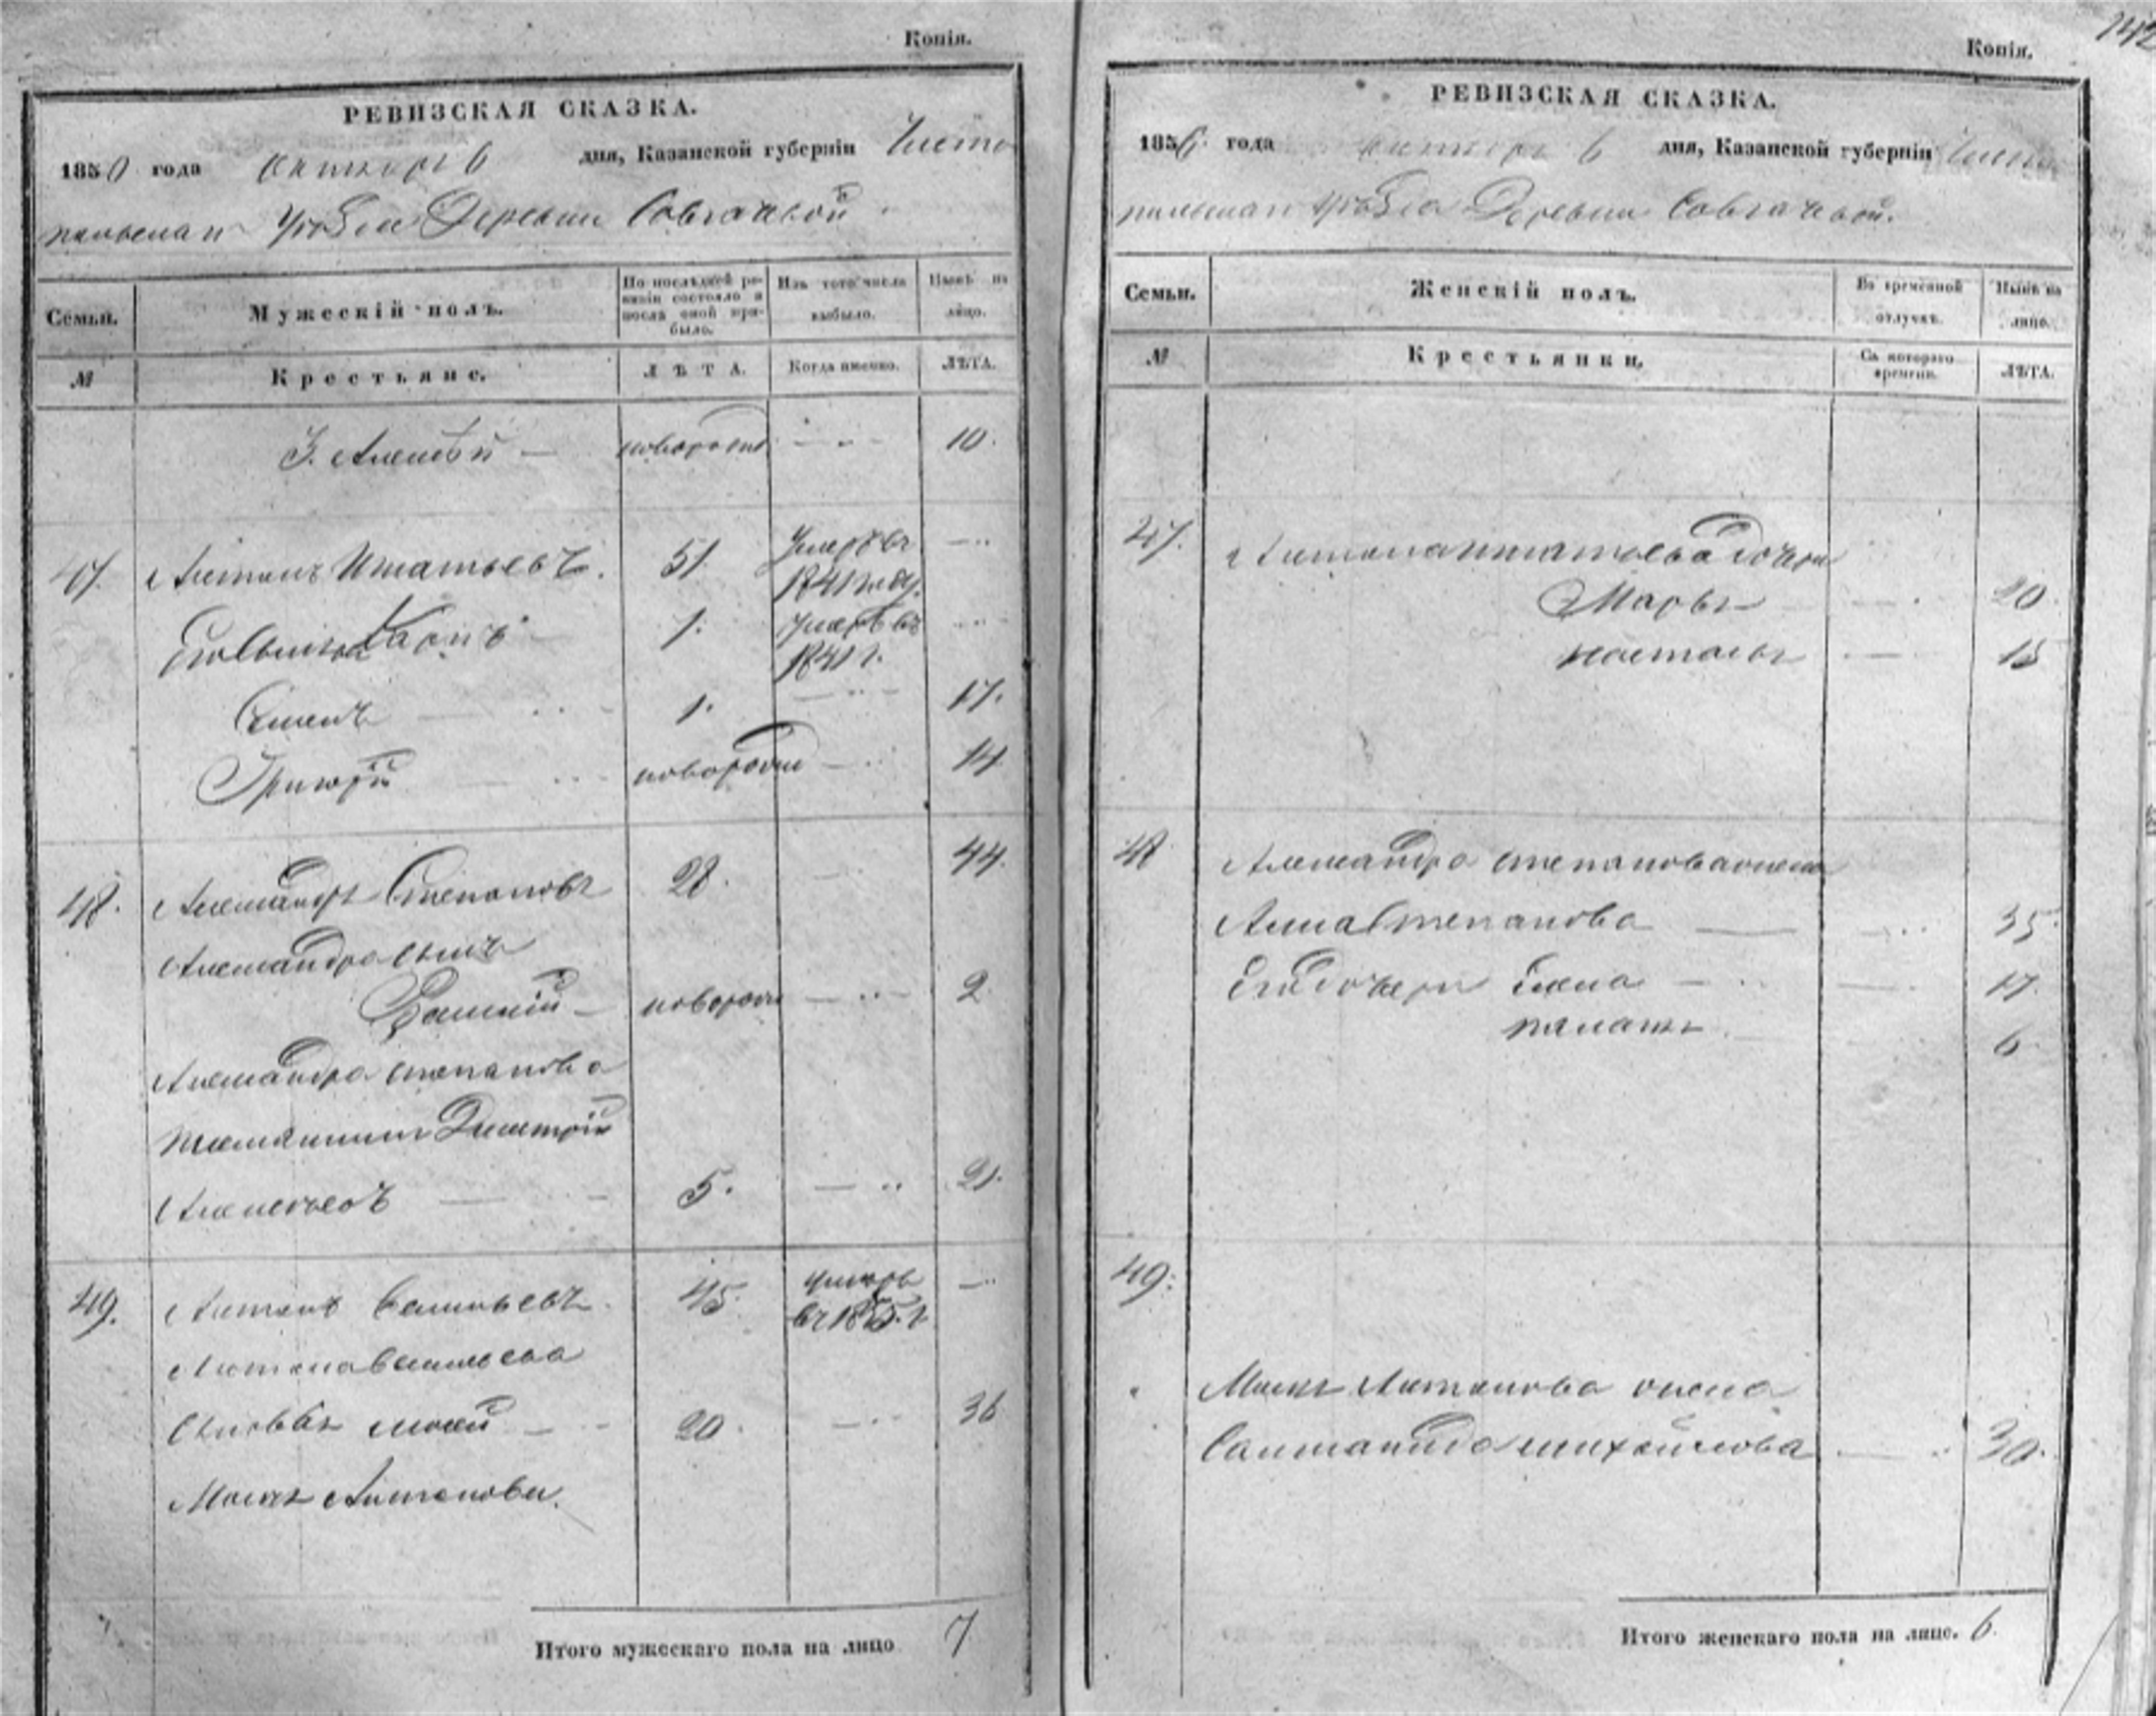 Копія.
РЕВИЗСКАЯ СКАЗКА.
1850 года октября 6 дня, Казанской губерніи Чисто
польскаго Уѣзда Деревни Савгачевой
Семьи. Мужескій полъ. По послѣдней ре-
визіи состояло и
послѣ оной при-
было. Изъ того числа
выбыло. Нынѣ на
лицо.
№ Крестьяне. ЛѢТА. Когда именно. ЛѢТА.
3. Алексѣй — новорожд 10.
47. Антонъ Игнатьевъ. 51. Умеръ въ
1841 году.
Его сыновья Карпъ 1. Умеръ въ
1841 г.
Семенъ 1. 17.
Григорій новорожд 14
48. Александръ Степановъ 28. 44.
Александра сынъ
Василій новорожд 2.
Александра Степанова
племянникъ Дмитрій
Алексѣевъ 5. 21.
49. Антонъ Васильевъ. 45. умеръ
въ 1855 г.
Антона Васильева
Сыновья Мокей 20 36
Мокея Антонова
Итого мужескаго пола на лицо 7
Копія.
142
РЕВИЗСКАЯ СКАЗКА.
1850 года октября 6 дня, Казанской губерніи Чисто
польскаго Уѣзда Деревни Савгачевой.
Семьи. Женскій полъ. Во временной
отлучкѣ. Нынѣ на
лицо.
№ Крестьянки, Съ котораго
времени. ЛѢТА.
47. Антона Игнатьева дочери
Марья 20
Настасья 15
48 Александра Степанова жена
Анна Степанова 35
Его дочери Елена 17.
Пелагея 6
49.
Мокея Антонова жена
Михайлова 30.
Итого женскаго пола на лицо. 6.